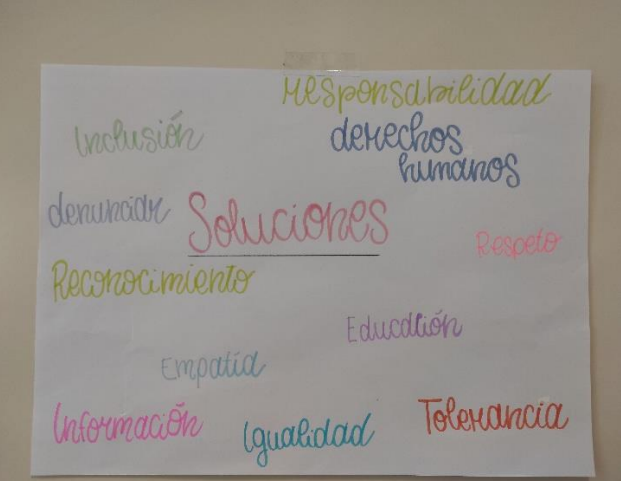 responsabilidad
Inclusión
derechos
humanos
denunciar
Soluciones
Respeto
Reconocimiento
Educación
Empatía
Información
Igualidad
Tolerancia